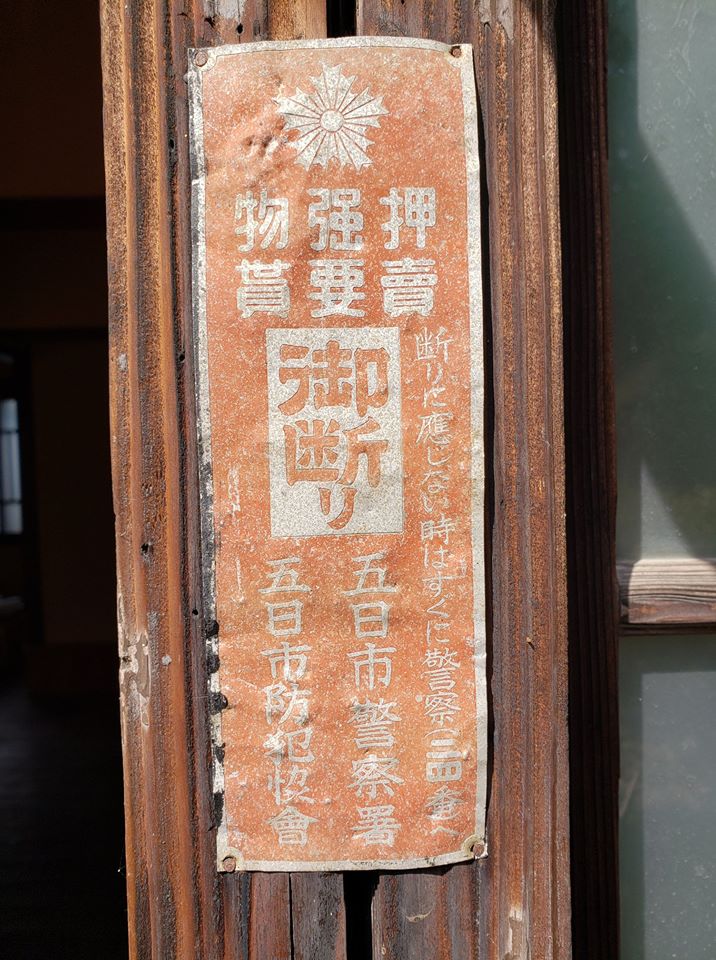 押賣
强要
物貰
御断り
断りに應じない時はすぐに警察(二四番)へ
五日市警察署
五日市防犯恊會